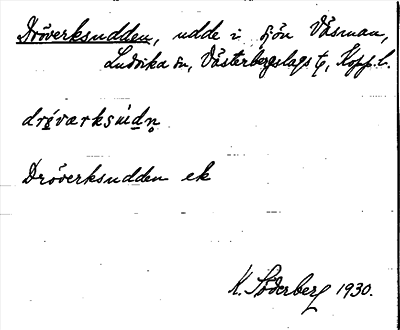 Dröverksudden, udde i sjön Väsman,
Ludvika sn, Västerbergslags tg, Kopp. l.
drǿværksu̇dn̥
Dröverksudden ek
K. Söderberg 1930.